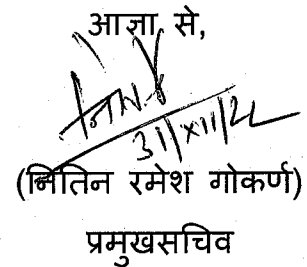 आज्ञा से,
31/XII/22
(नितिन रमेश गोकर्ण)
प्रमुखसचिव